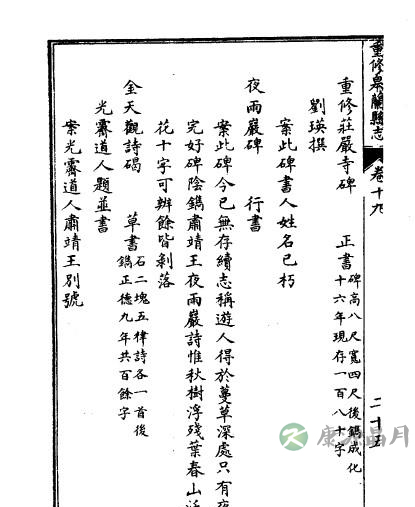 重修皋蘭縣志 卷十九 二十五
重修莊嚴寺碑 正書 碑高八尺寬四尺後鐫成化
十六年現存一百八十字
劉瑛撰
案此碑書人姓名已朽
夜雨巖碑 行書
案此碑今已無存續志稱遊人得於蔓草深處只有夜
完好碑陰鐫肅靖王夜雨巖詩惟秋樹浮殘葉春山
花十字可辨餘皆剝落
金天觀詩碣 草書 石二塊五律詩各一首後
鐫正德九年共百餘字
光霽道人題並書
案光霽道人肅靖王別號
康 晶月